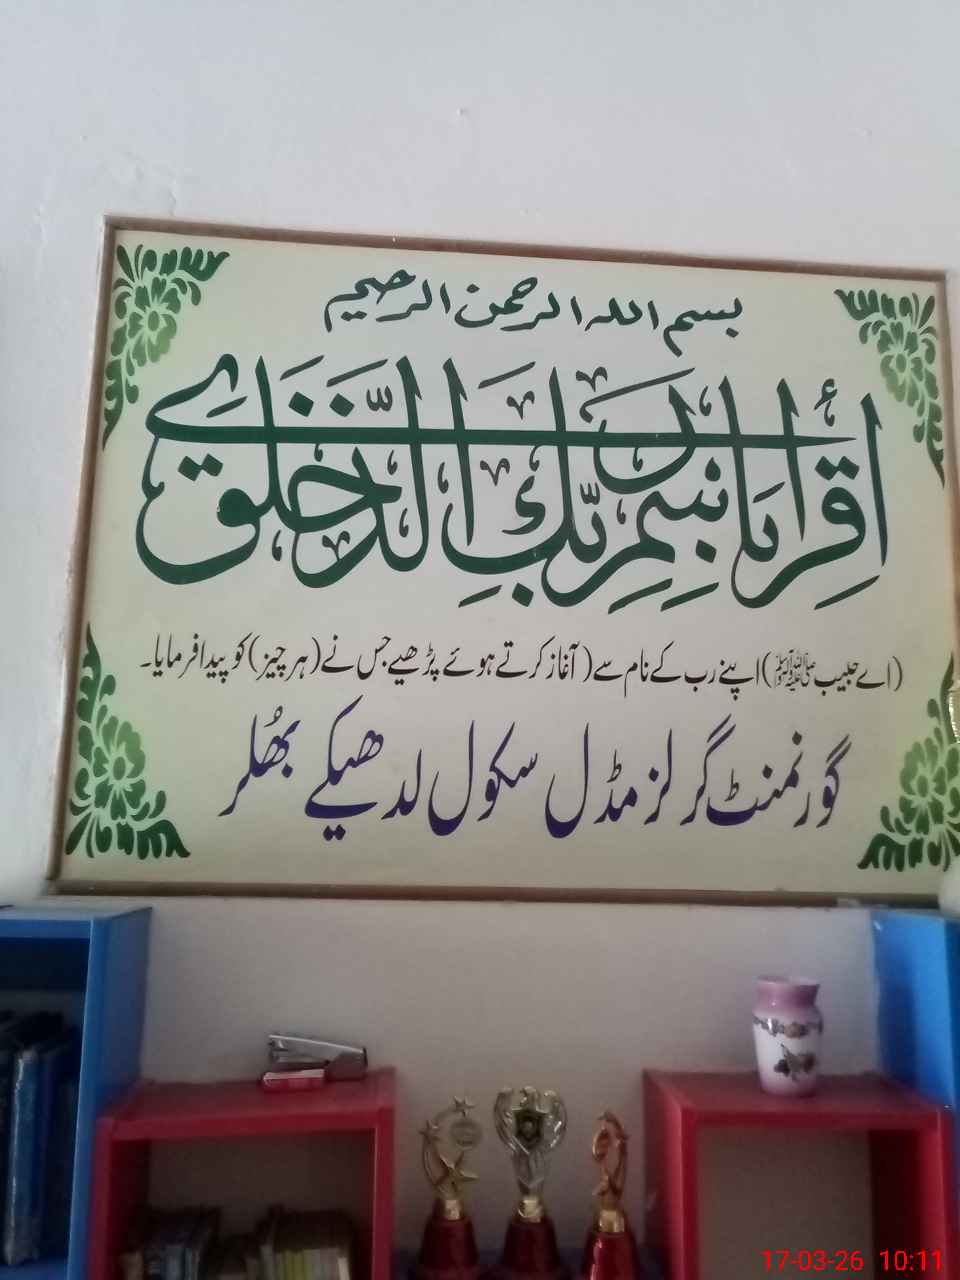 بسم الله الرحمن الرحيم
اِقْرَأْ بِاسْمِ رَبِّكَ الَّذِي خَلَقَ
(اے حبیب ﷺ) اپنے رب کے نام سے (آغاز کرتے ہوئے پڑھیے جس نے (ہر چیز) کو پیدا فرمایا۔
گورنمنٹ گرلز مڈل سکول لدھیکے بھُلر
17-03-26 10:11